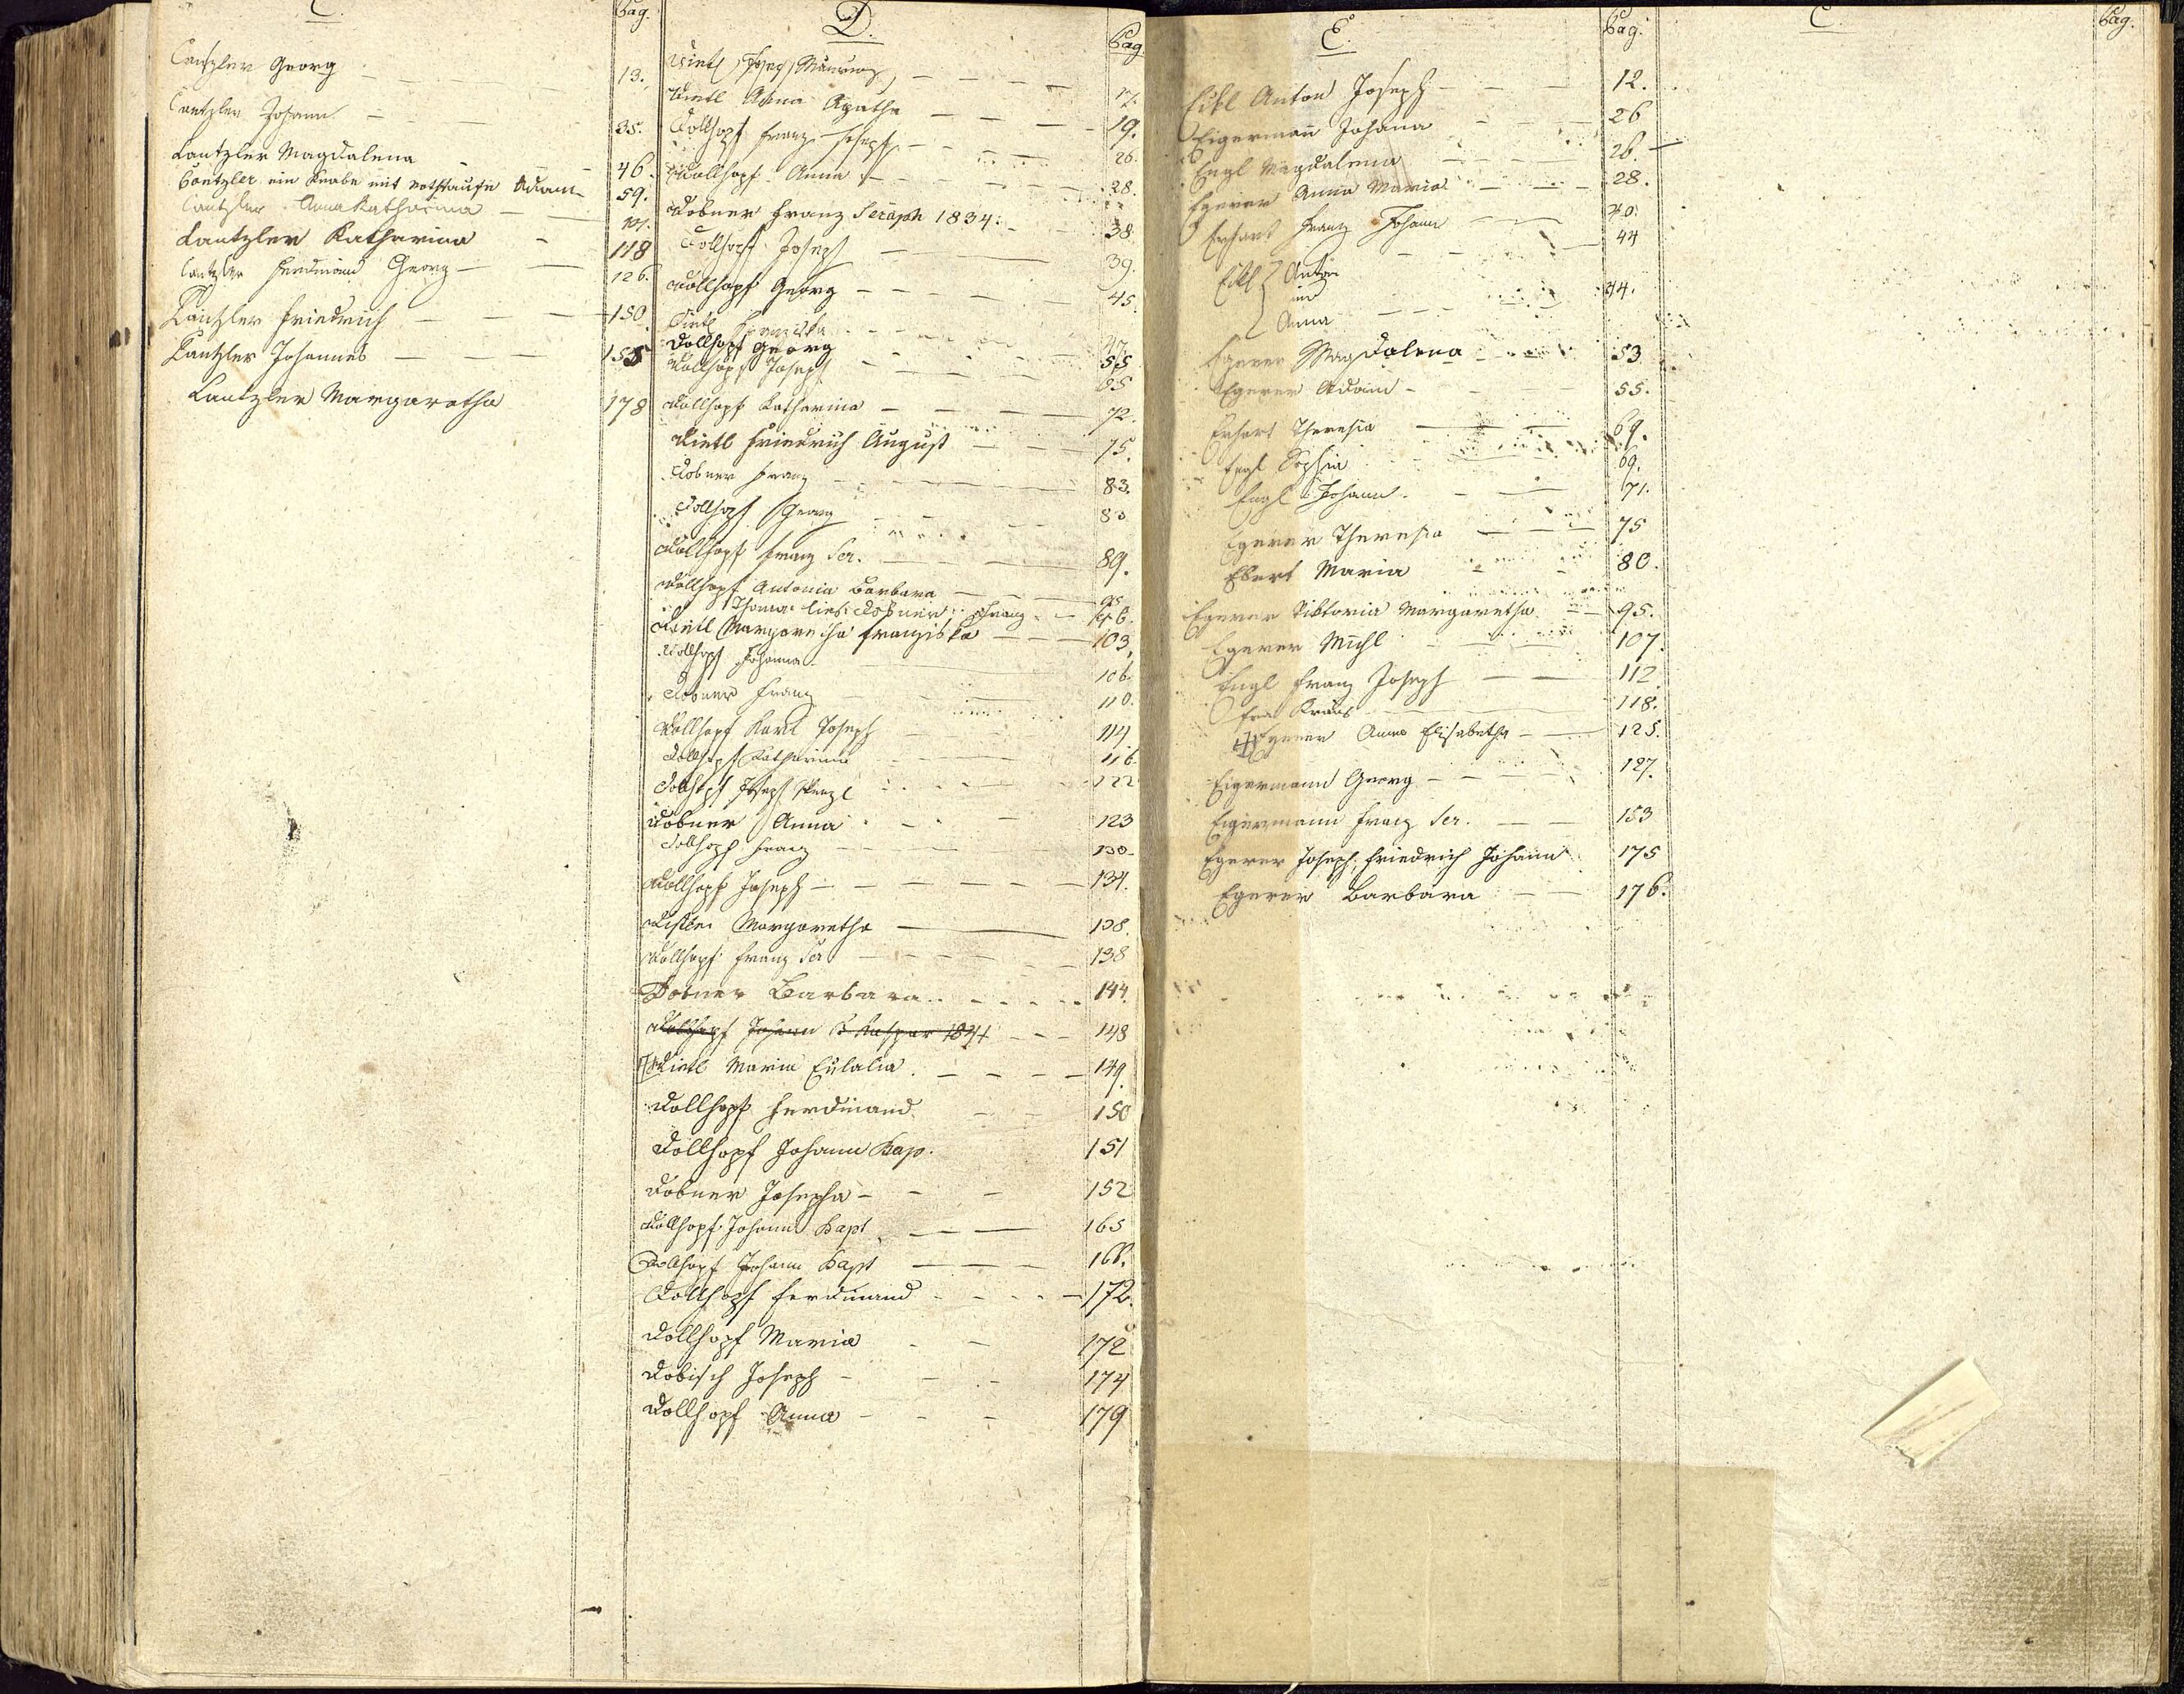 C.
Pag.
Cantzler Georg 13.
Cantzler Johann 35.
Cantzler Magdalena 46.
Cantzler ein Knabe mit Nothtaufe Adam 59.
Cantzler Anna Katharina
Cantzler Katharina 118
Cantzler Ferdinand Georg 126.
Cantzler Friedrich 150
Cantzler Johannes 155
Cantzler Margaretha 178
D.
Pag.
Dietl Josef 17.
Dietl Anna Agatha 19.
Dollhopf Franz Joseph 26.
Dollhopf Anna 28.
Dobner Franz Seraph 1834. 38
Dollhopf Joseph 39.
Dollhopf Georg 45
Dietl Franziska
Dollhopf Georg 55
Dollhopf Joseph 65
Dollhopf Katharina 72.
Dietl Friedrich August 75.
Dobner Franz 83.
Dollhopf Georg 83
Dollhopf Franz Ser. 89.
Dollhopf Antonia Barbara 95
Thoma lies: Dobner Franz
Dietl Margaretha Franziska 103,
Dollhopf Johanna 106
Dobner Franz 110.
Dollhopf Karl Joseph 114
Dollhopf Katharina 116
Dollhopf Joseph Wenzl 122
Dobner Anna 123
Dollhopf Franz 130
Dollhopf Joseph 134.
Margaretha 138.
Dollhopf Franz Ser 138
Dobner Barbara 144.
Dollhopf Johann B Kaspar 1844 148
Dietl Maria Eulalia 149.
Dollhopf Ferdinand 150
Dollhopf Johann Bap. 151
Dobner Josepha 152
Dollhopf Johann Bapt 165
Dollhopf Johann Bapt 166.
Dollhopf Ferdinand 172.
Dollhopf Maria 172
Dobisch Joseph 174
Dollhopf Anna 179
E.
Pag.
Eikl Anton Joseph 12.
Eigermann Johanna 26
Engl Magdalena 26.
Egerer Anna Maria 28.
Erhart Franz Johann 40.
44
Eikl Anton
und 44.
Anna
Egerer Magdalena 53
Egerer Adam 55.
Erhart Theresia 69.
Engl Sophia 69.
Engl Johann 71.
Egerer Theresia 75
Ebert Maria 80.
Egerer Viktoria Margaretha 95.
Egerer Michl 107.
Engl Franz Joseph 112
118.
Egerer Anna Elisabetha 125.
Eigermann Georg 127.
Eigermann Franz Ser. 153
Egerer Joseph, Friedrich Johann 175
Egerer Barbara 176.
E.
Pag.